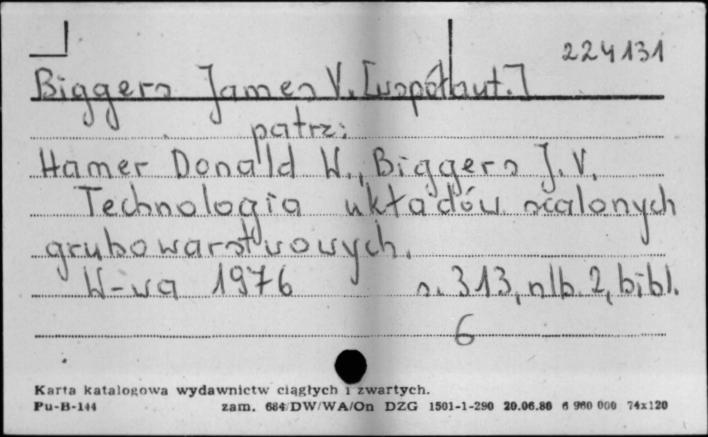 224131
Biggers James V. [współaut.]
patrz:
Hamer Donald W., Biggers J. V.
Technologia układów scalonych
grubowarstwowych.
W-wa 1976 s. 313, nlb. 2, bibl.
6
Karta katalogowa wydawnictw ciągłych i zwartych.
Pu-B-144 zam. 684/DW/WA/On DZG 1501-1-290 20.06.86 6 960 000 74x120